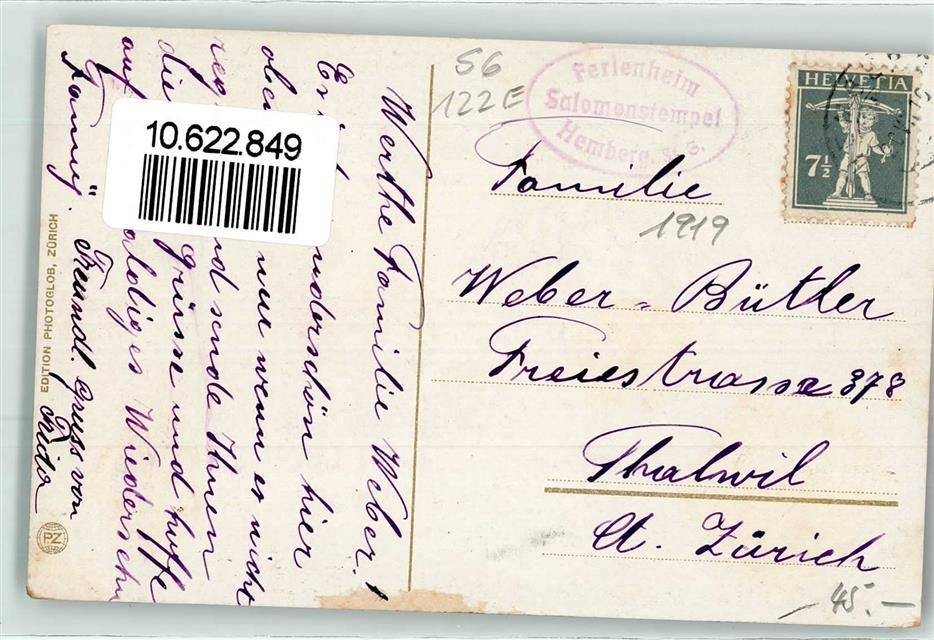 Werthe Familie Weber!
Es wunderschön hier
oben nur wenn es nicht
reg und sende Ihnen
die grüsse und hoffe
auf baldiges Wiedersehn
Fanny.
Freundl. Gruss von
Frida
10.622.849
EDITION PHOTOGLOB, ZÜRICH
PZ
SG
122E
Ferienheim
Salomonstempel
Hemberg, St. G.
HELVETIA
7½
Familie
1919
Weber-Bütler
Freiestrasse 378
Thalwil
Ct. Zürich
45.-